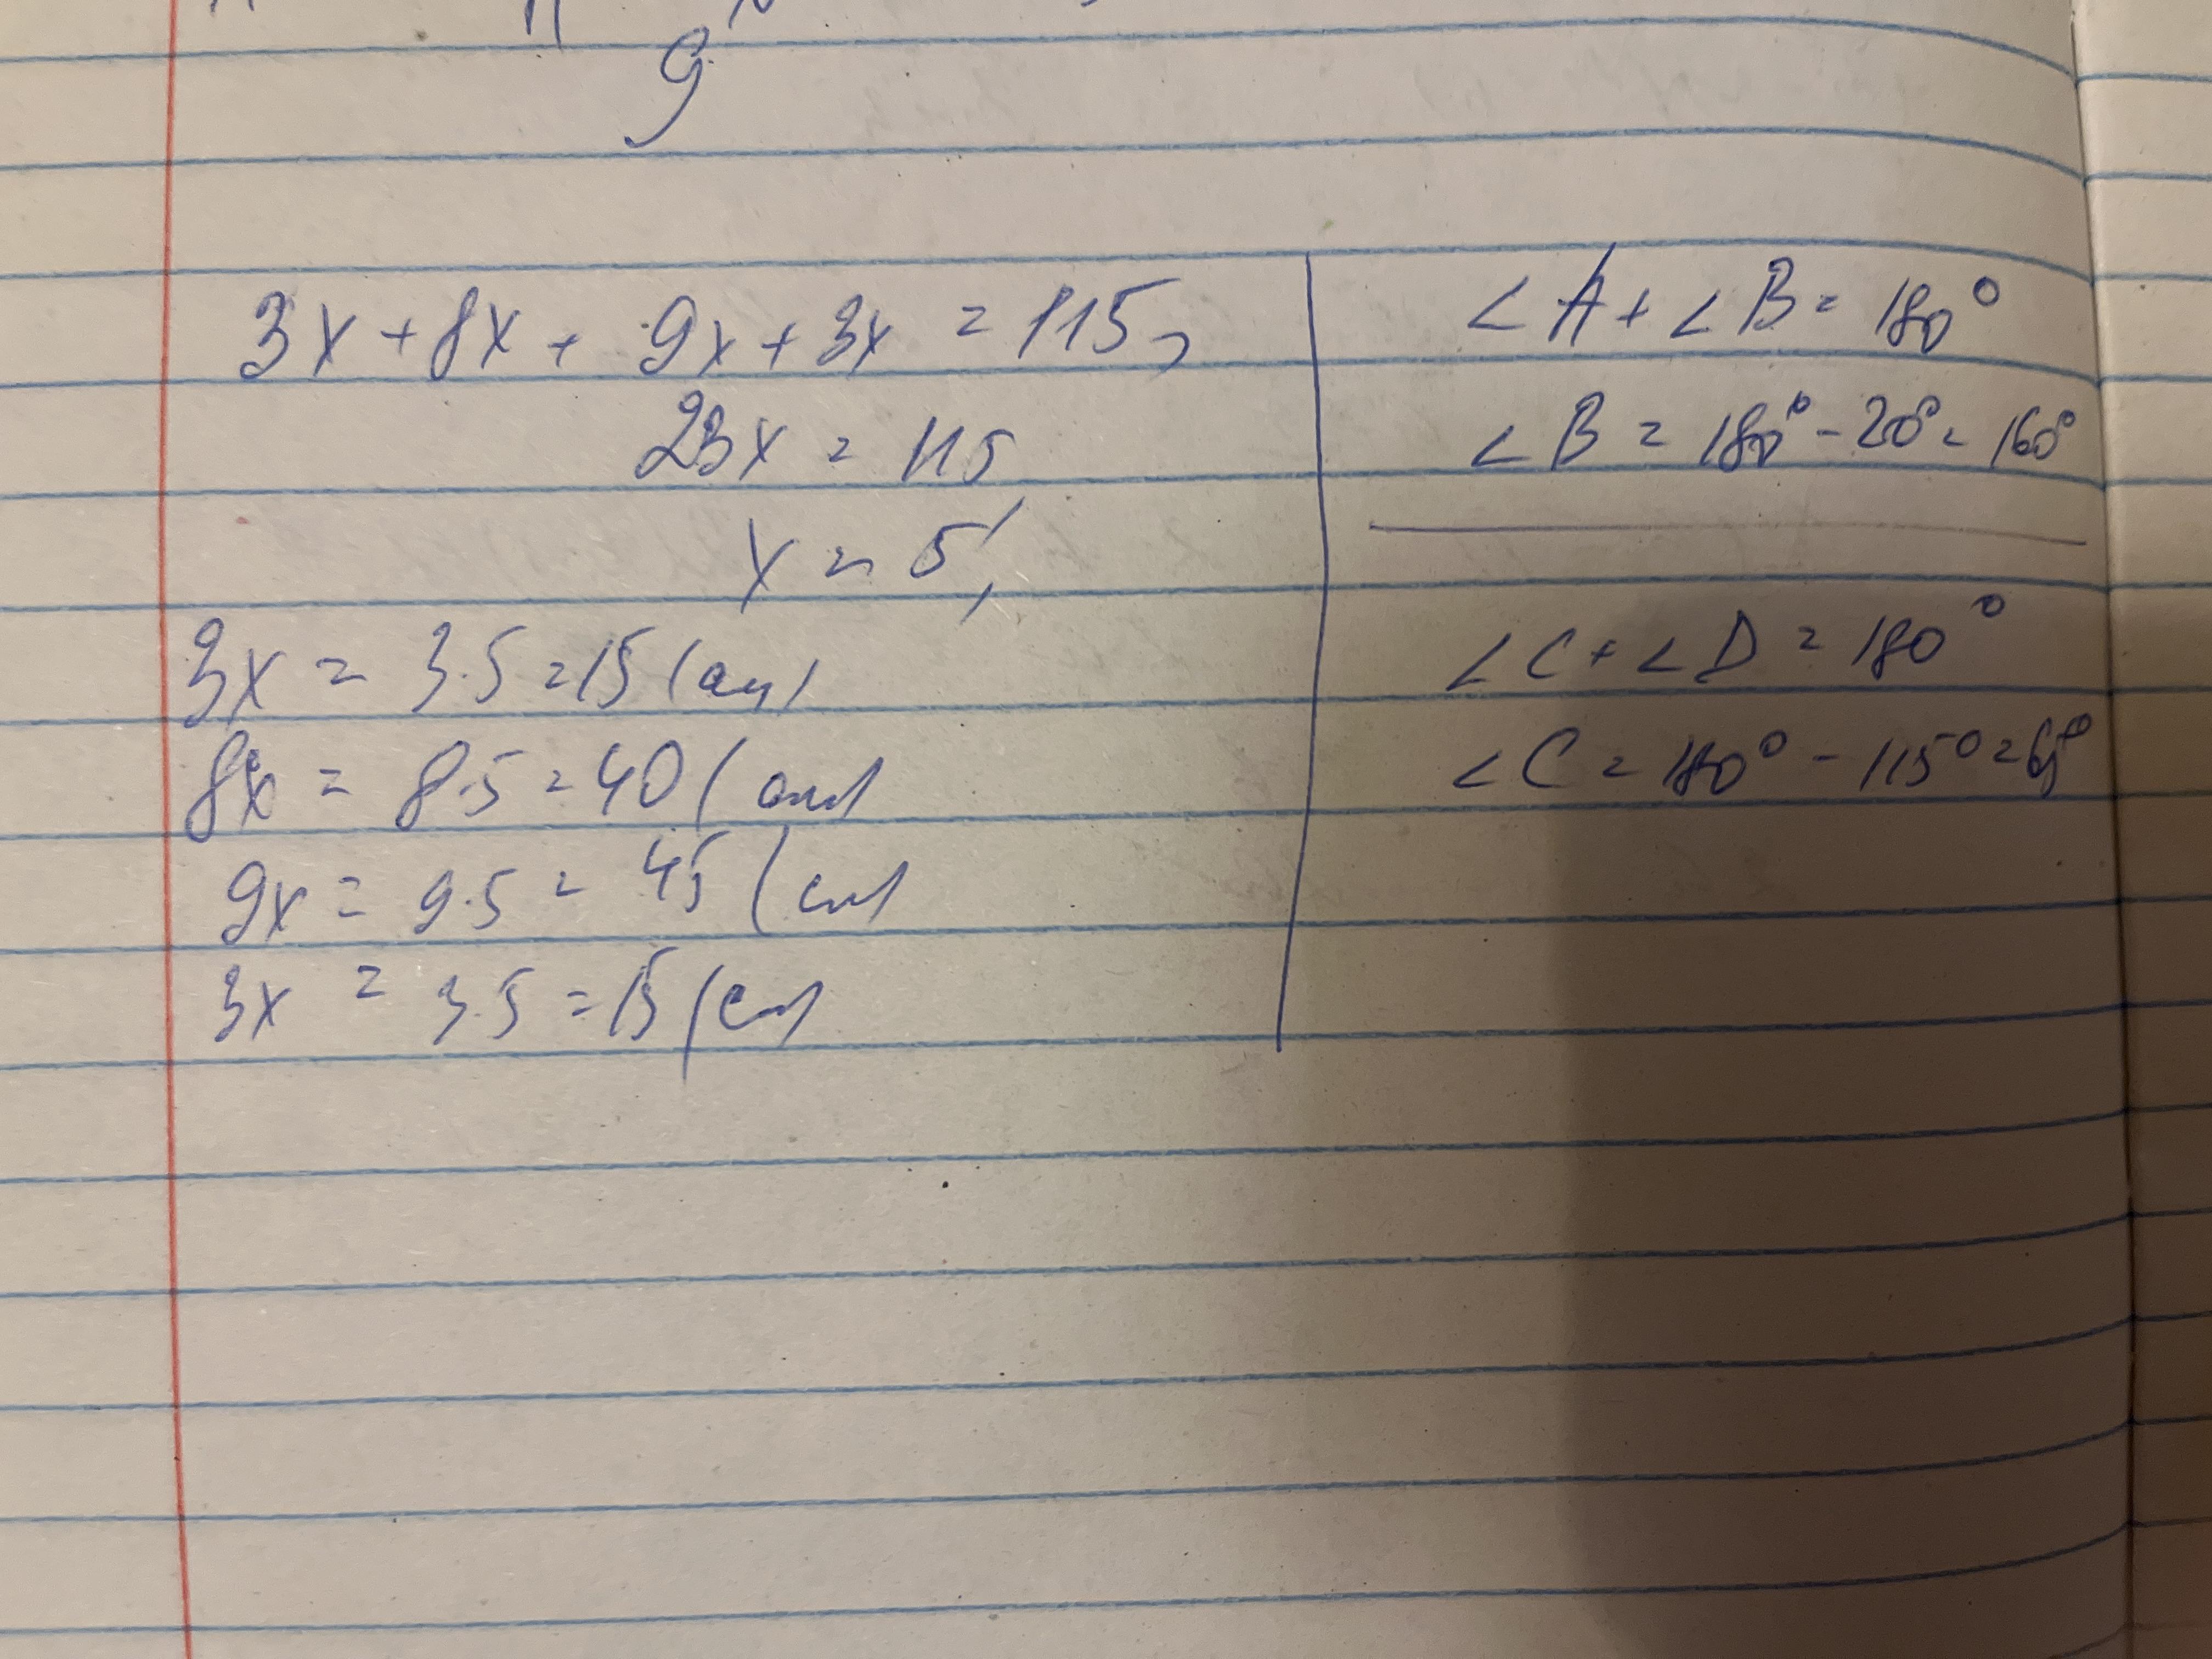 g
3x + 8x + 9x + 3x = 115,
23x = 115
x = 5,
3x = 3·5 = 15 (см)
8x = 8·5 = 40 (см)
9x = 9·5 = 45 (см)
3x = 3·5 = 15 (см)
∠A + ∠B = 180°
∠B = 180° - 20° = 160°
∠C + ∠D = 180°
∠C = 180° - 115° = 65°